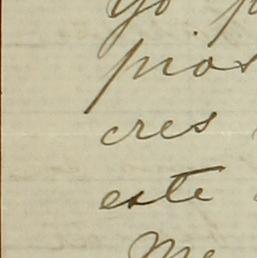 yo p
pios
cres
este
Me